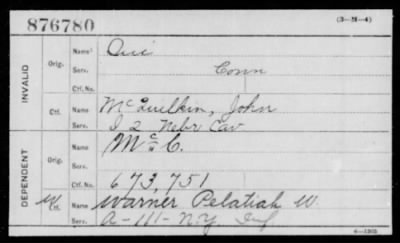 876780
(3-M-4)
INVALID
Orig.
Name
Serv. Conn
Ctf. No.
Ctf.
Name McQuilkin, John
Serv. I 2 Nebr Cav
DEPENDENT
Orig.
Name McC.
Serv.
Ctf. No. 673,751
Ctf.
Name Warner Pelatiah W.
Serv. A-111-N.Y. Inf